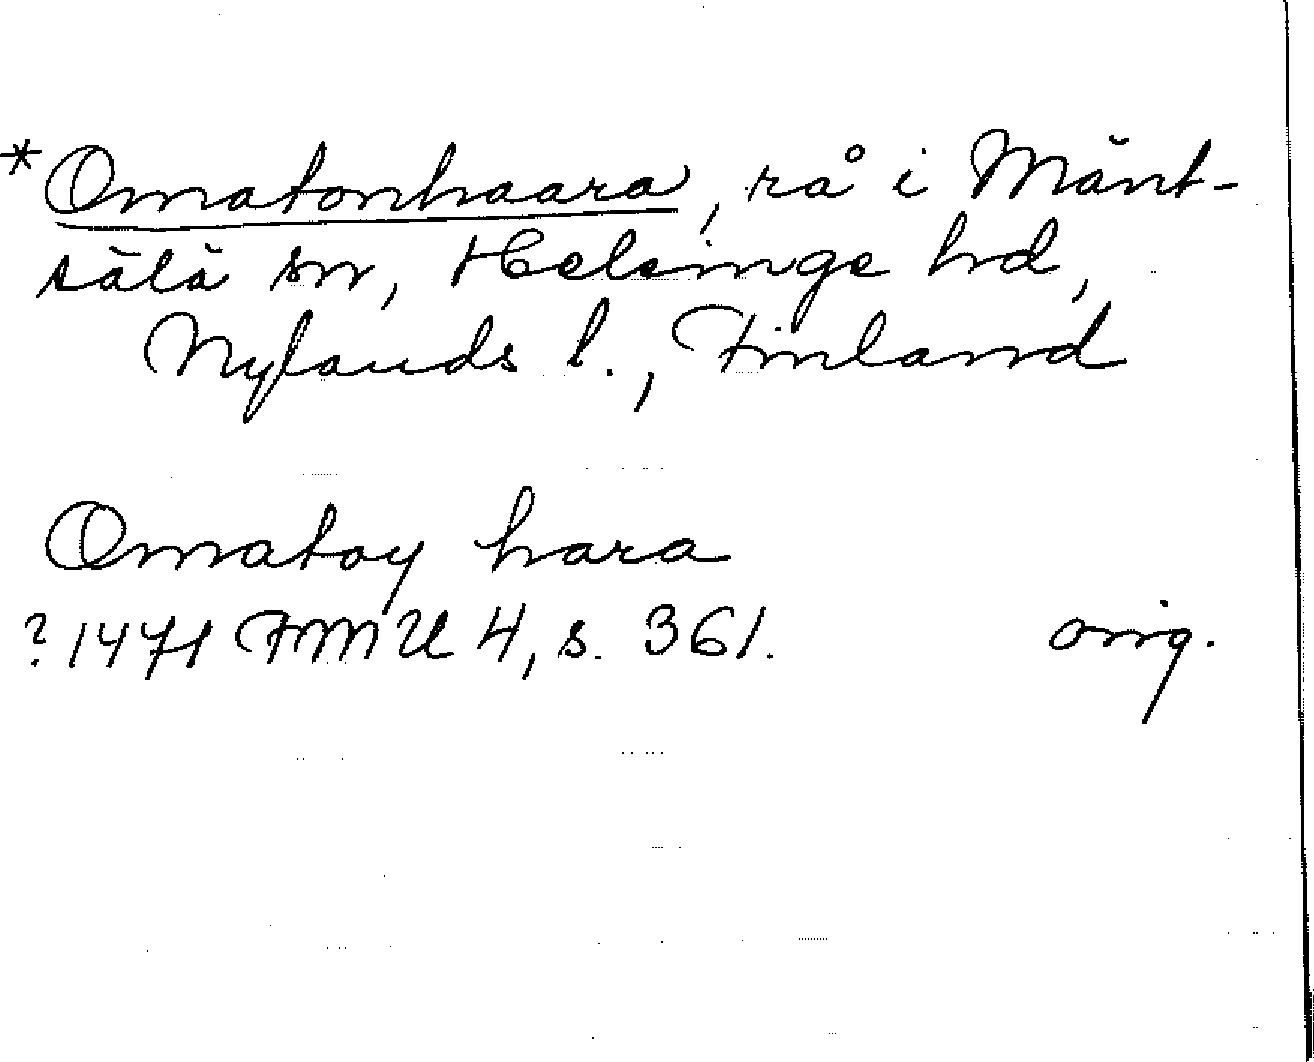 *Omatonhaara, rå i Mänt-
sälä sn, Helsinge hd,
Nylands l., Finland
Omatoy hara
?1471 FMU 4, s. 361. orig.